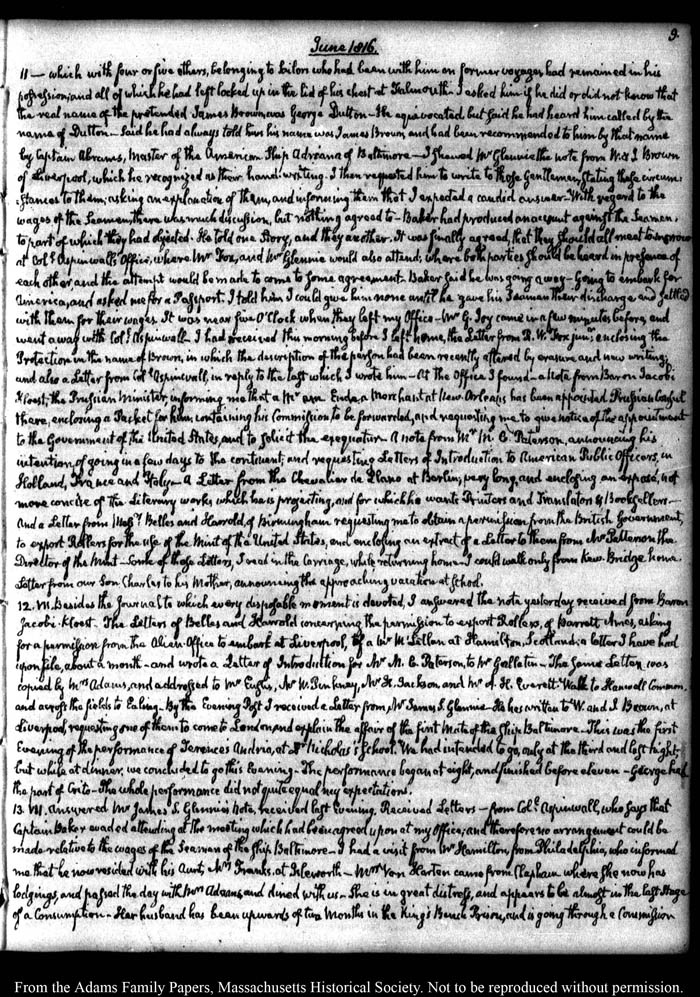 9.
June 1816.
11 — which with four or five others, belonging to Sailors who had been with him on former voyages had remained in his
possession; and all of which he had left locked up in the lid of his chest at Falmouth. I asked him if he did or did not know that
the real name of the pretended James Brown, was George Dutton — He equivocated but said he had heard him called by the
name of Dutton — Said he had always told him his name was James Brown and had been recommended to him by that name
by Captain Abrams, Master of the American Ship Adriana of Baltimore — I shewed Mr Glennie the note from W. & J. Brown
of Liverpool, which he recognized as their hand-writing. I then requested him to write to those Gentlemen, stating these circum-
stances to them; asking an explanation of them, and informing them that I expected a candid answer. With regard to the
wages of the Seamen, there was much discussion, but nothing agreed to — Baker had produced an account against the Seamen,
to part of which they had objected. He told one Story, and they another. It was finally agreed, that they should all meet to-morrow
at Coll. Aspinwall's Office, where Mr Fox, and Mr Glennie would also attend; where both parties should be heard in presence of
each other and the attempt would be made to come to some agreement — Baker said he was going away — Going to embark for
America, and asked me for a Passport. I told him I could give him none until he gave his Seamen their discharge and settled
with them for their wages. It was near five O'Clock when they left my Office — Mr G. Joy came in a few minutes before, and
went away with Coll. Aspinwall — I had received this morning before I left home, the Letter from R. W. Fox junr. enclosing the
Protection in the name of Brown, in which the description of the person had been recently altered by erasure and new writing;
and also a Letter from Coll. Aspinwall, in reply to the last which I wrote him — At the Office I found — a Note from Baron Jacobi
Kloest, the Prussian Minister, informing me that a Mr am Ende, a Merchant at New Orleans has been appointed Prussian Consul
there, enclosing a Packet for him, containing his Commission to be forwarded, and requesting me to give notice of the appointment
to the Government of the United States, and to solicit the exequatur — A note from Mr M. C. Paterson, announcing his
intention of going in a few days to the continent; and requesting Letters of Introduction to American Public Officers, in
Holland, France and Italy — A Letter from the Chevalier de Llano at Berlin; very long, and enclosing an exposé, not
more concise of the Literary works which he is projecting, and for which he wants Printers and Translators & Booksellers —
And a Letter from Messrs Belles and Harrold of Birmingham requesting me to obtain a permission from the British Government,
to export Rollers for the use of the Mint of the United States, and enclosing an extract of a Letter to them from Mr Patterson the
Director of the Mint — Some of these Letters, I read in the Carriage, while returning home — I could walk only from Kew-Bridge home.
Letter from our Son Charles to his Mother, announcing the approaching vacation at School.
12. VII. Besides the Journal to which every disposable moment is devoted, I answered the note yesterday received from Baron
Jacobi-Kloest — The Letters of Belles and Harrold concerning the permission to export Rollers, of Barrett Ames, asking
for a permission from the Alien-Office to embark at Liverpool, of a Wm McLellan at Hamilton, Scotland; a letter I have had
upon file, about a month — and wrote a Letter of Introduction for Mr M. C. Paterson, to Mr Gallatin — The same Letter was
copied by Mrs Adams, and addressed to Mr Eustis, Mr W. Pinkney, Mr H. Jackson and Mr A. H. Everett. Walk to Hanwell Common,
and across the fields to Ealing — By the Evening Post I received a Letter from Mr James S. Glennie — He has written to W. and J. Brown, at
Liverpool, requesting one of them to come to London and explain the affair of the first Mate of the Ship Baltimore — This was the first
Evening of the performance of Terence's Andria, at Dr Nicholas's School. We had intended to go, only at the third and last night —
but while at dinner, we concluded to go this Evening — The performance began at eight, and finished before eleven — George had
the part of Crito — The whole performance did not quite equal my expectations.
13. VII. Answered Mr James S. Glennie's Note, received last Evening. Received Letters — from Coll. Aspinwall, who says that
Captain Baker evaded attending at the meeting which had been agreed upon at my Office; and therefore no arrangement could be
made relative to the wages of the Seamen of the Ship Baltimore — I had a visit from Mr Hamilton, from Philadelphia, who informed
me that he now resided with his Aunt, Mrs Franks, at Isleworth — Mrs Von Harten came from Clapham where she now has
lodgings, and passed the day with Mrs Adams and dined with us — She is in great distress, and appears to be almost in the last Stage
of a Consumption — Her husband has been upwards of two Months in the King's Bench Prison, and is going through a Commission
From the Adams Family Papers, Massachusetts Historical Society. Not to be reproduced without permission.